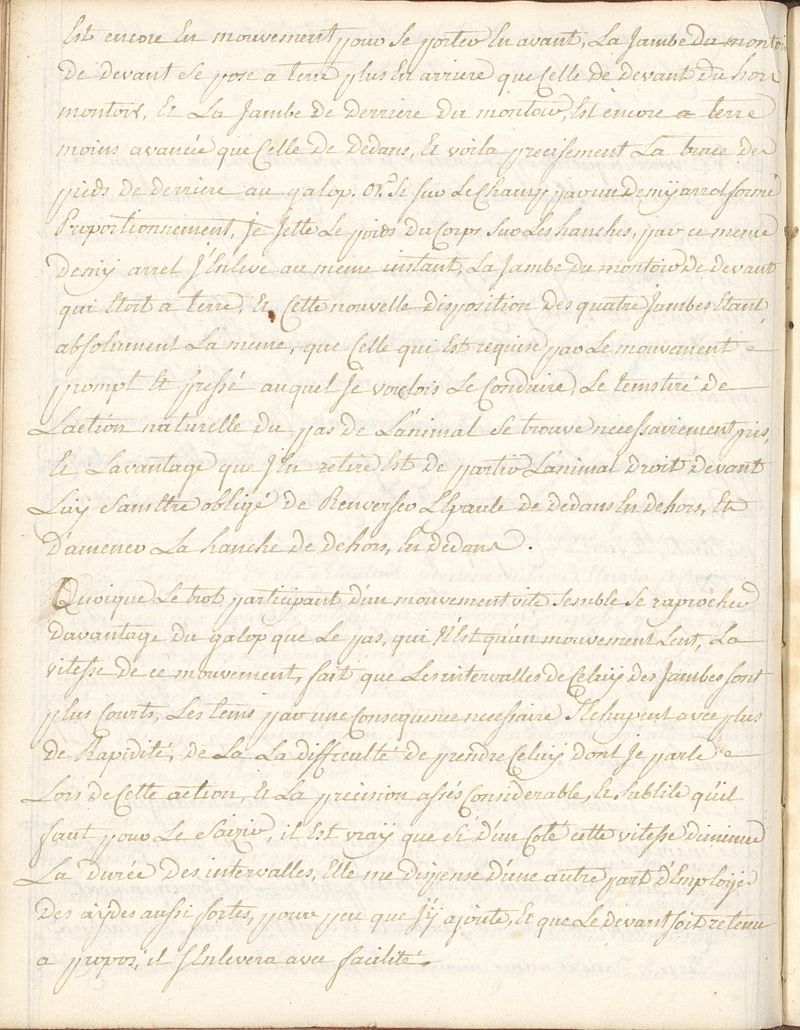 Est encore En mouvement pour Se porter En avant, La Jambe du montoir
de devant Se pose a terre plus En arriere que Celle de devant du hors
montoir, Et La Jambe de Derriere du montoir, Est encore a terre
moins avancée que Celle de Dedans, Et voila precisement La trace des
pieds de derriere au galop. Or Si Sur Le Champ par un Demy arrot formé
Proportionnement, Je Jette Le poids du Corps Sur Les hanches, par ce meme
Demy arret J'Enleve au meme instant, La Jambe du montoir de devant
qui Etoit a terre, Et Cette nouvelle disposition des quatre Jambes Etant
absolument La meme, que Celle qui Est requise par Le mouvement
prompt Et pressé auquel Je voulois Le Conduire, Le tems tiré de
L'action naturelle du pas de L'animal Se trouve necessairement pris,
Et Lavantage que J'En retire Est de partir L'animal droit devant
Luy Sans Etre obligé de Renverser L'Epaule de Dedans En dehors, Et
D'amener La hanche de dehors, En dedans.
Quoique Le trot participant d'un mouvement vite Semble Se raprocher
Davantage du galop que Le pas, qui N'Est qu'un mouvement Lent, La
vitesse de ce mouvement, fait que Les intervalles de Celuy des Jambes Sont
plus Courts, Les tems par une Consequence necessaire S'Echapent avec plus
de Rapidité, de La La difficulté de prendre Celuy dont Je parle
Lors de Cette action, Et La precision assés Considerable, Et Subtile qu'il
faut pour Le Saizir, il Est vray que Si D'un Coté cette vitesse diminue
La durée Des intervalles, Elle me dispense d'une autre part D'Employer
Des aydes aussi fortes, pour peu que J'y ajoute, Et que Le devant Soit retenu
a propos, il S'Enlevera avec facilité.